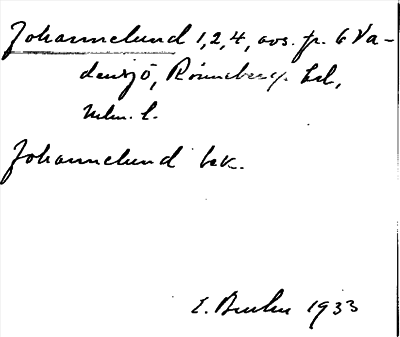 Johannelund 1, 2, 4, avs. fr. 6 Va-
densjö, Rönneberg. hd,
Mlm. l.
Johannelund bek.
E. 1933